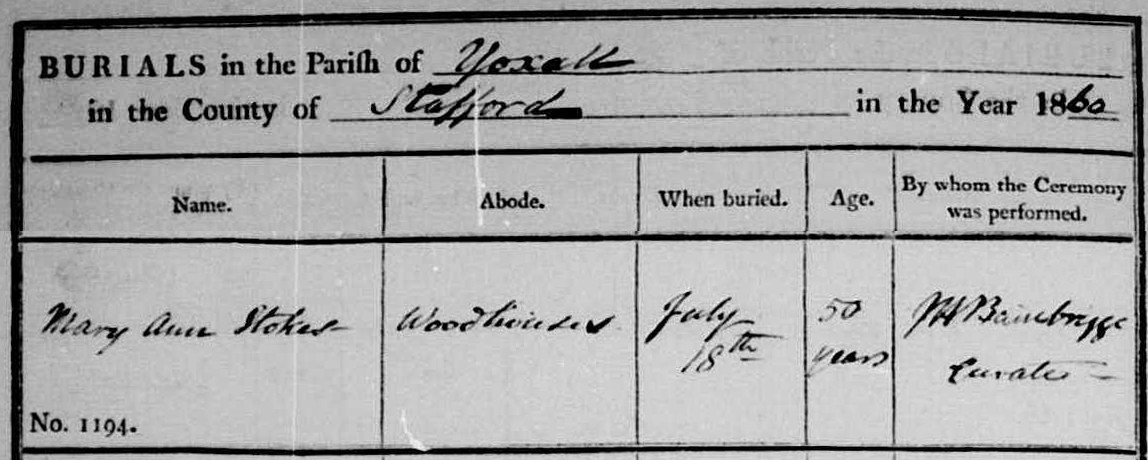 BURIALS in the Parish of Yoxall
in the County of Stafford in the Year 1860
Name. Abode. When buried. Age. By whom the Ceremony was performed.
Mary Ann Stokes Woodhouses July 18th 50 years Bainbrigge Curate
No. 1194.